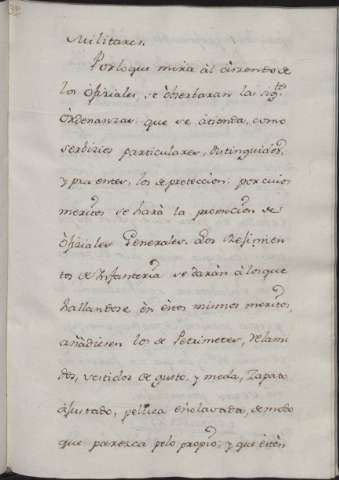 Militares.
Por lo que mira àl àszenso de
los òficiales, se òbserbaran las sigtes
òrdenanzas: que se àtienda, como
serbizios particulares, distinguidos,
y prudentes, los de proteccion: por cuios
meritos se harà la promocion de
òficiales Generales. Los Regimien
tos de Infanteria se daràn à los que
hallandose èn èstos mismos meritos,
añadiesen los de Petrimetes, Relami
dos, vestidos de gusto, y moda, Zapato
àjustado, pellica enclavada, de modo
que paresca pelo propio; y que èstèn